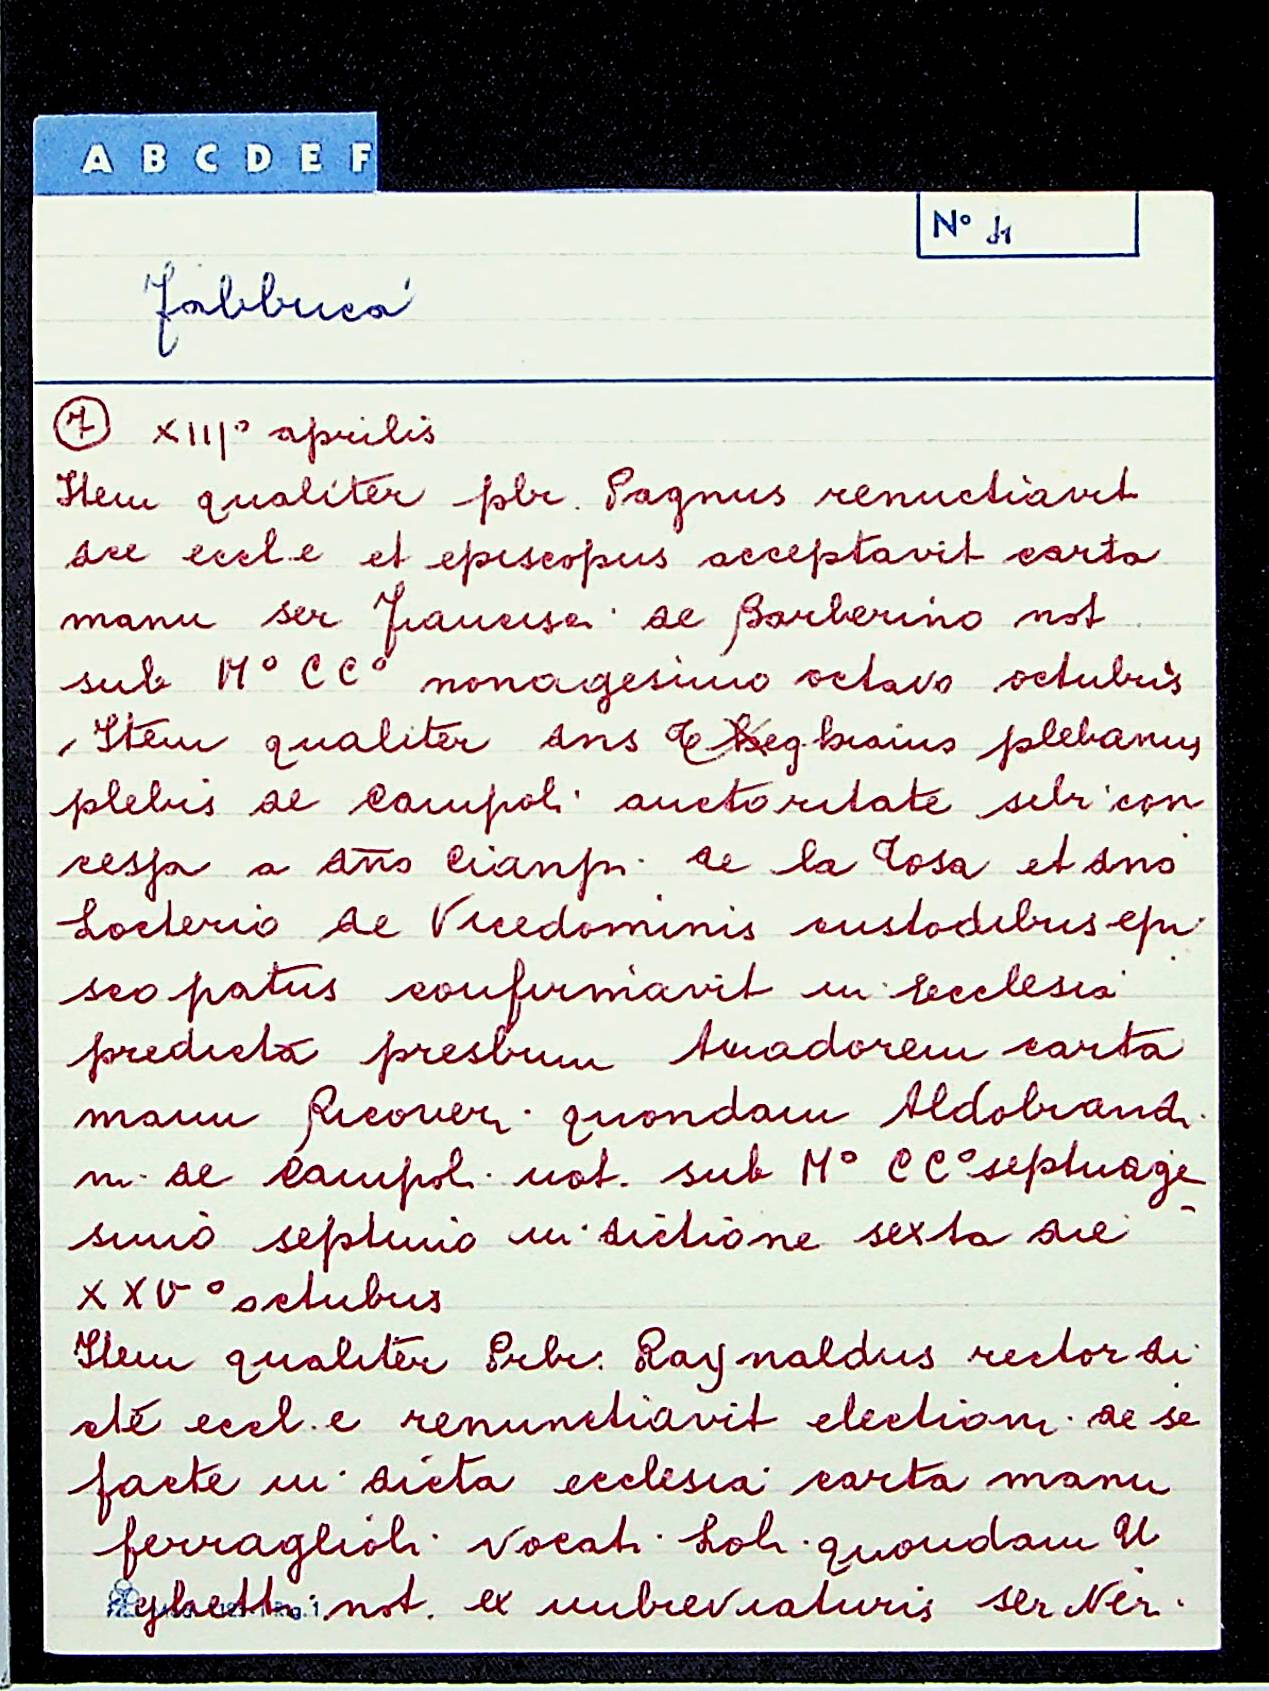 A B C D E F
Nº
Fabbrica
7 XIIIº aprilis
Item qualiter pbr. Pagnus renuctiavit
dce eccl.e et episcopus acceptavit carta
manu ser Francisci de Barberino not
sub Mº CCº nonagesimo octavo octubris
Item qualiter dns Teghiaius plebanus
plebis de Campoli auctoritate sibi con
cessa a dño Cianpi de la Tosa et dno
Locterio de Vicedominis custodibus epi
scopatus confirmavit in ecclesia
predicta presbrum Amadorem carta
manu Ricoveri quondam Aldobrandi
ni de Campoli not. sub Mº CCº septuage
simo septimo indictione sexta die
XXVº octubris
Item qualiter Prbr. Raynaldus rector di
cte eccl.e renunctiavit electioni de se
facte in dicta ecclesia carta manu
ferraglioli vocati Loli quondam U
ghetti not. ex imbreviaturis ser Neri